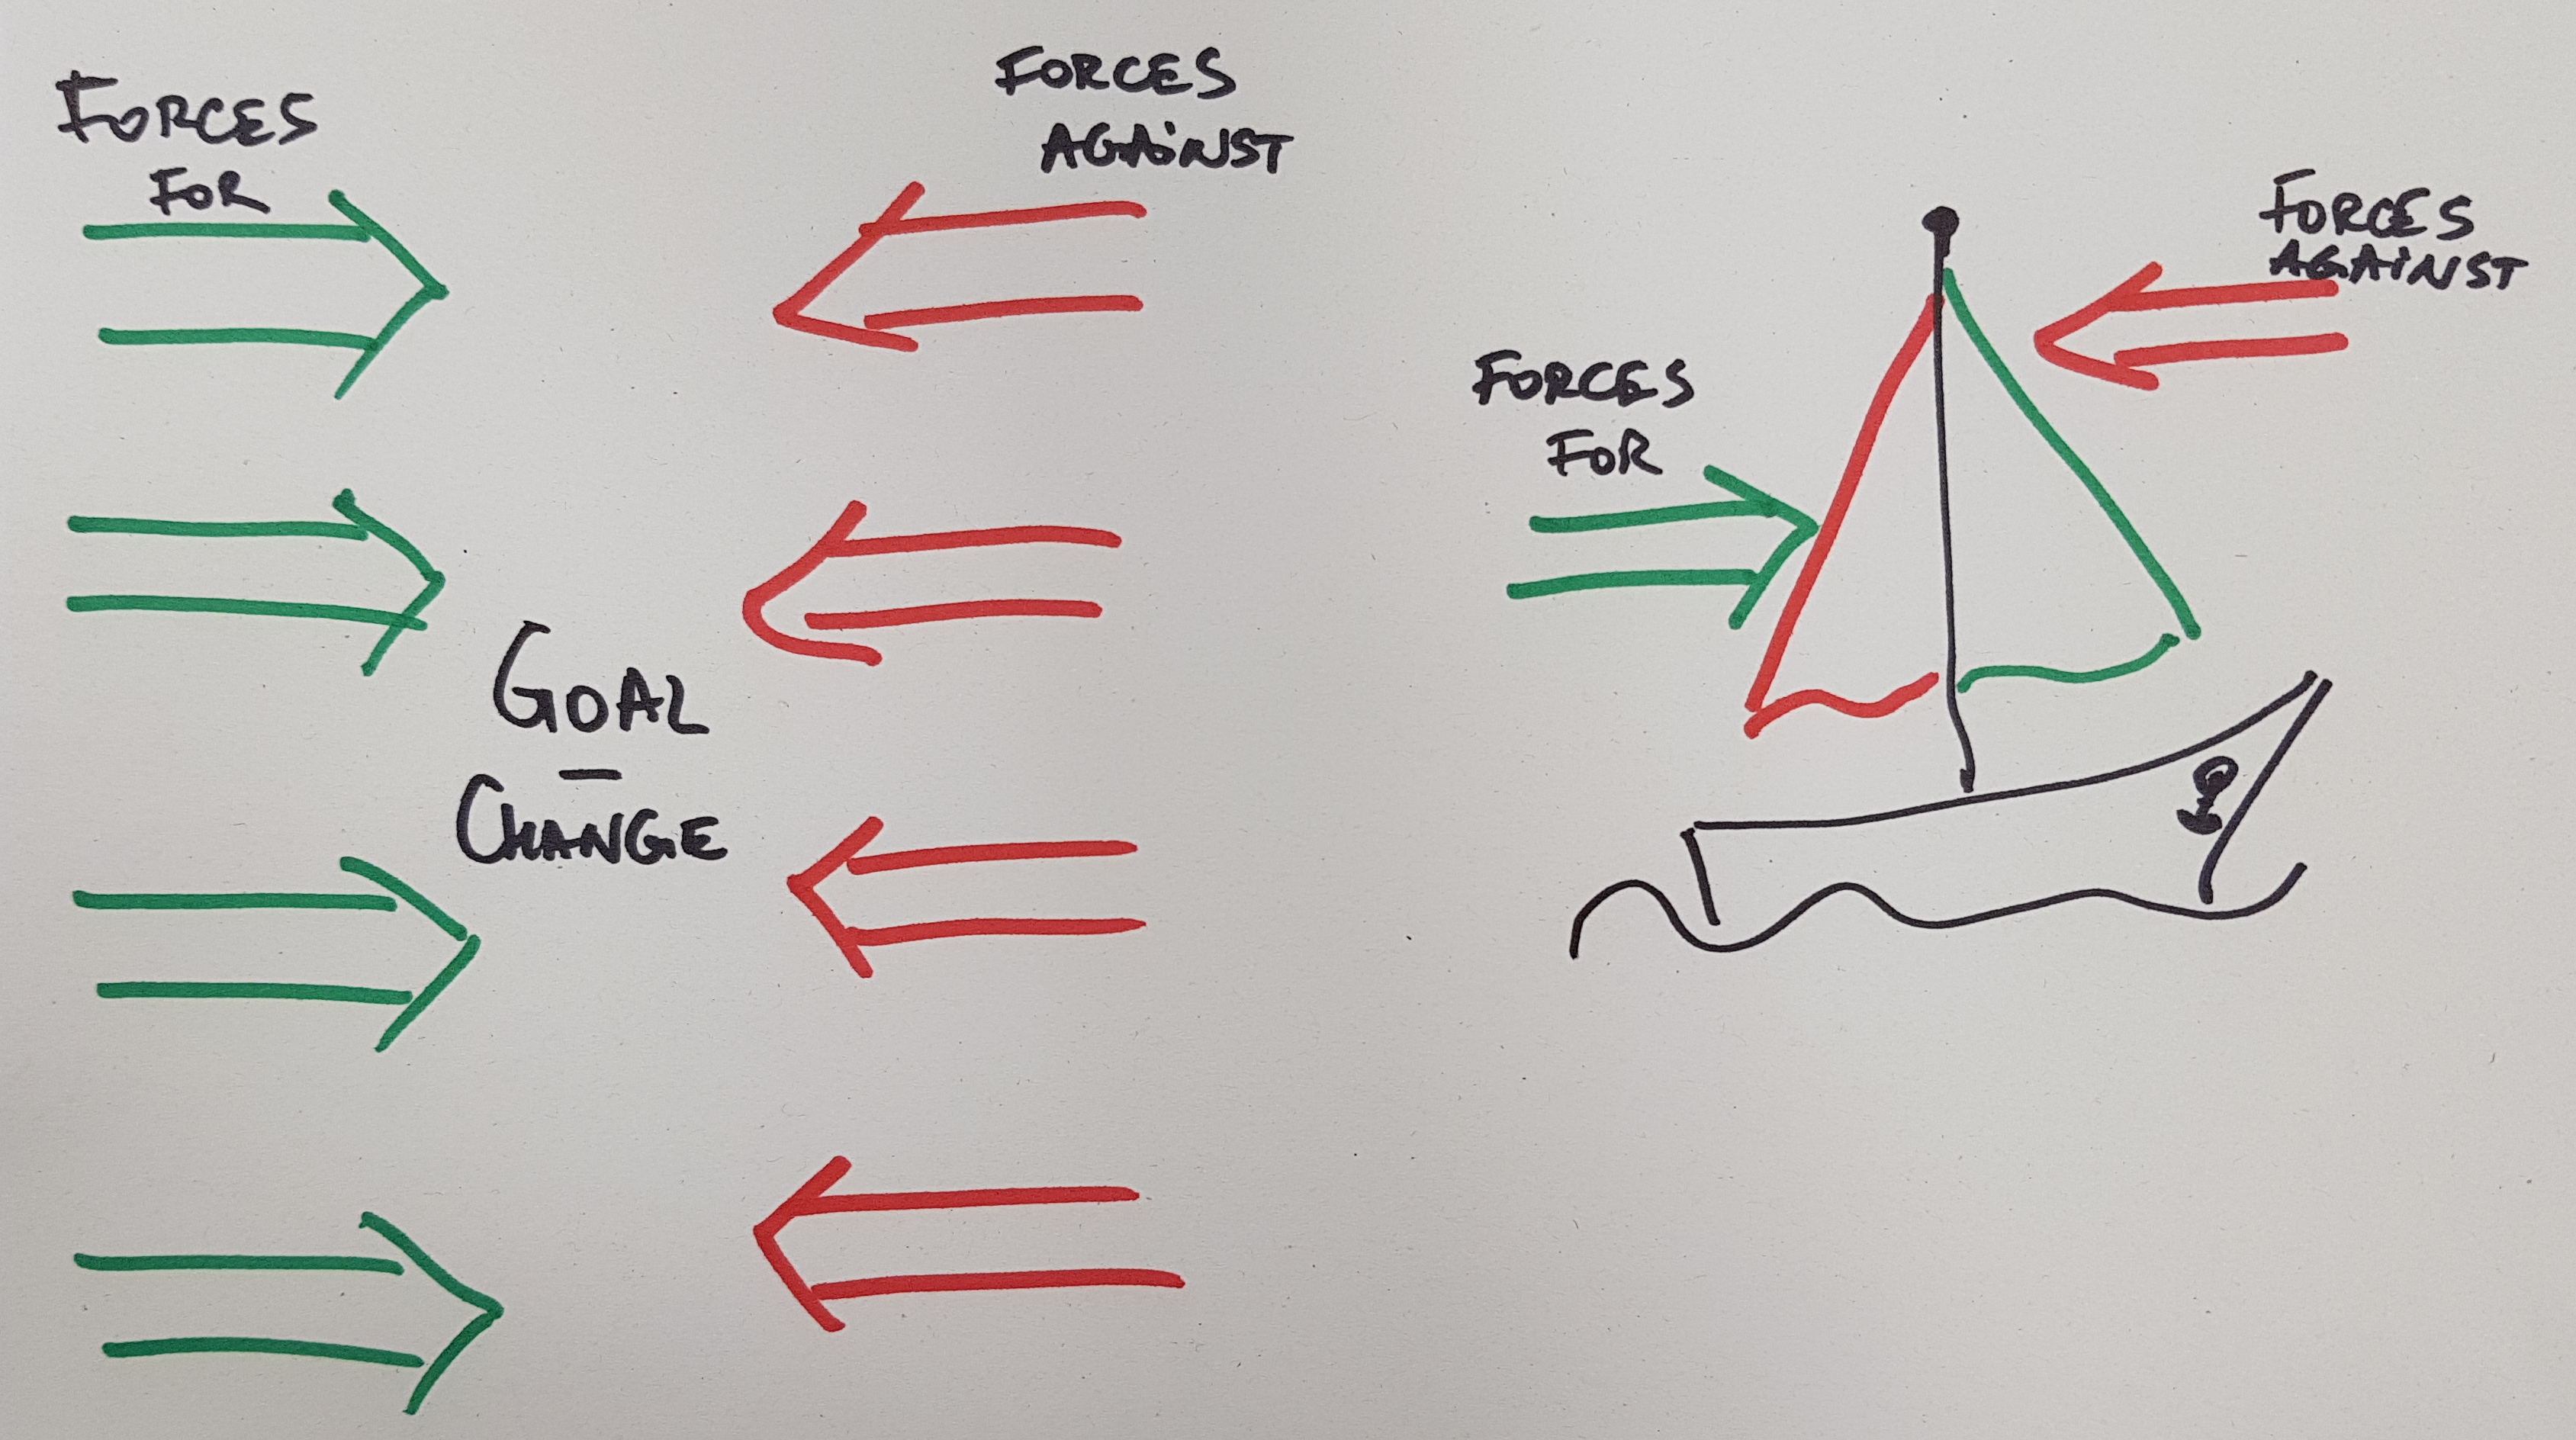 FORCES
FOR
FORCES
AGAiNST
GOAL
–
CHANGE
FORCES
FOR
FORCES
AGAiNST